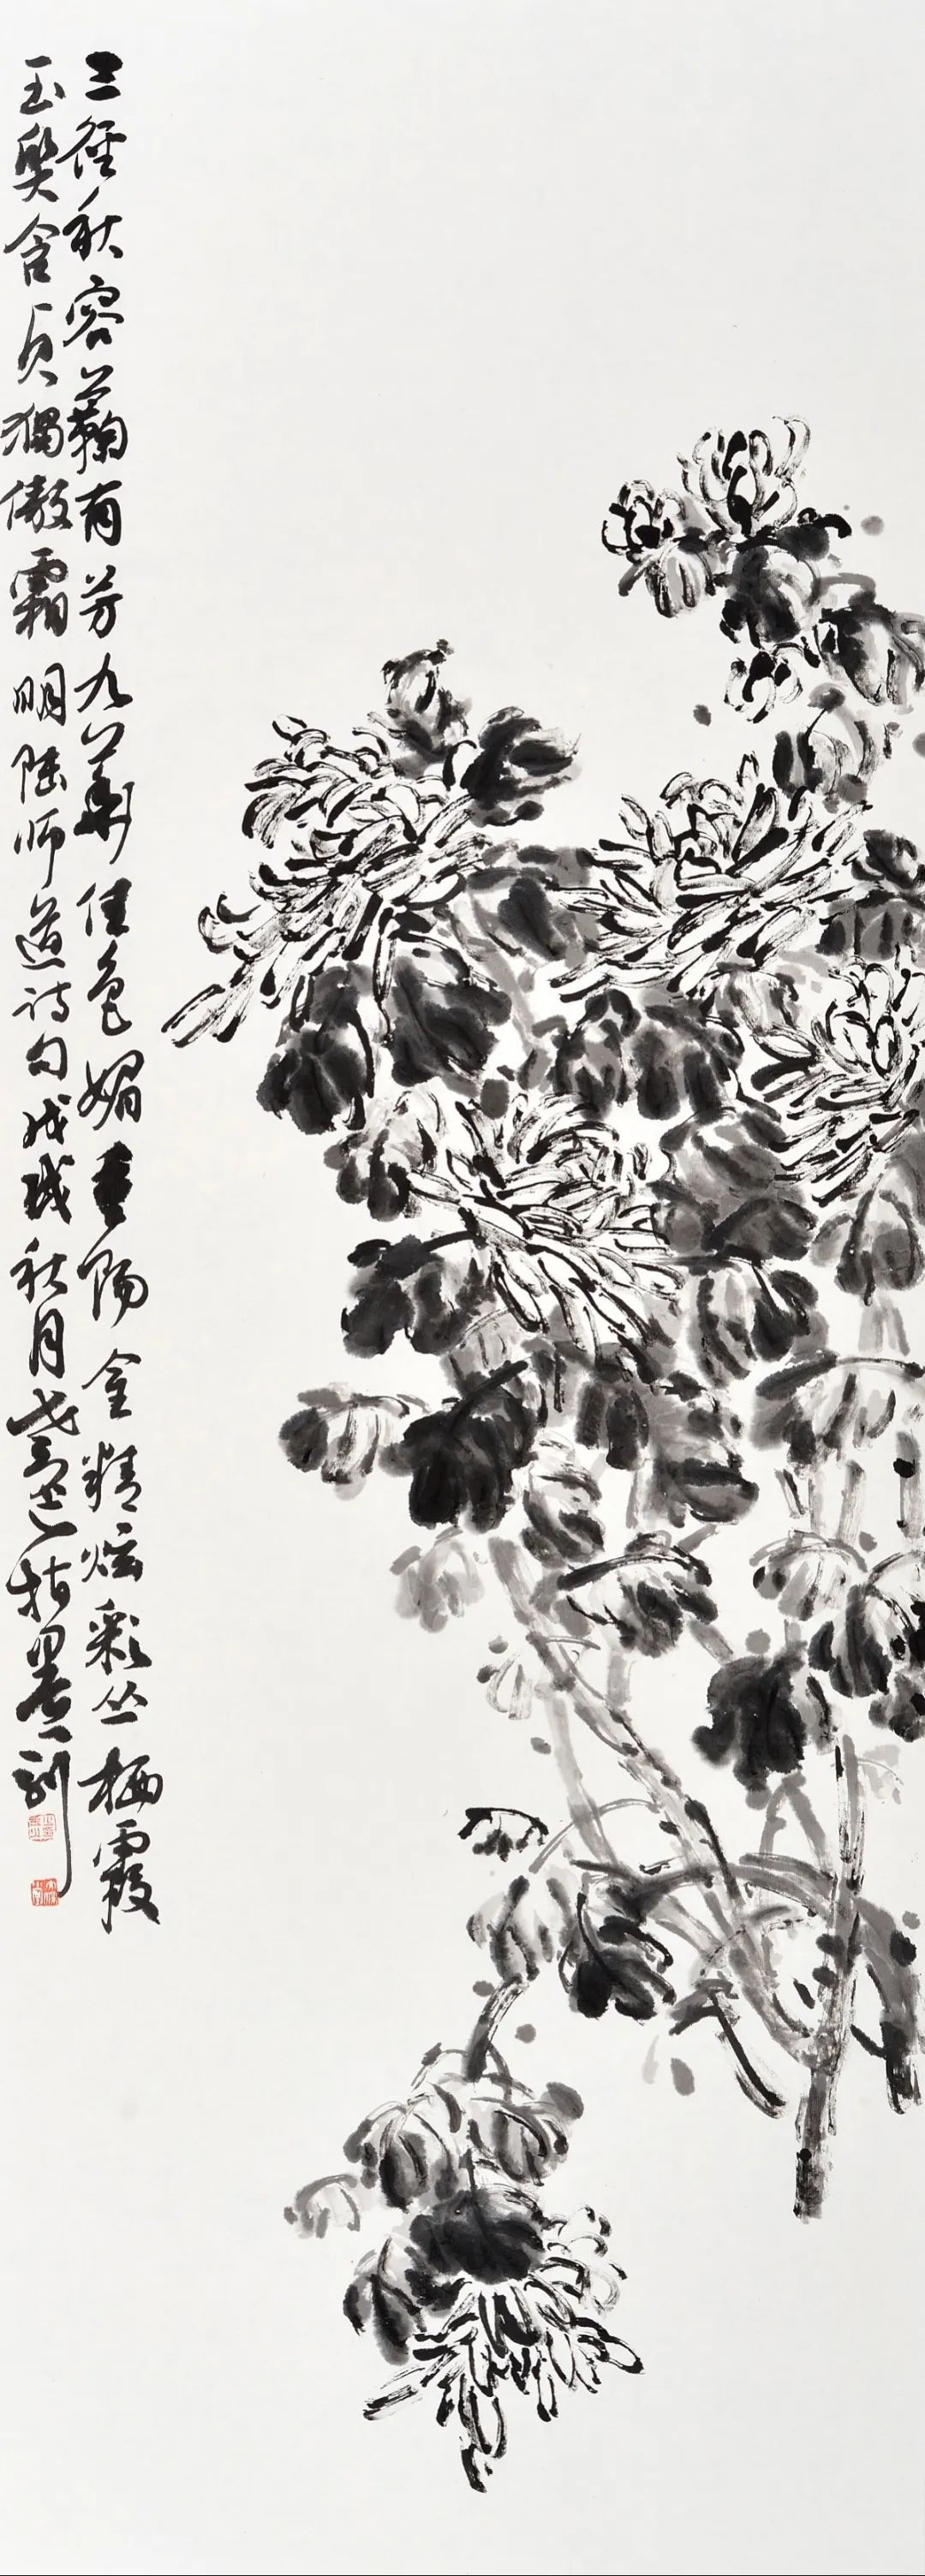 三径秋容菊有芳九华佳色媚重阳金精炫彩丛栖霞
玉质含贞独傲霜明陆师道诗句戊戌秋月